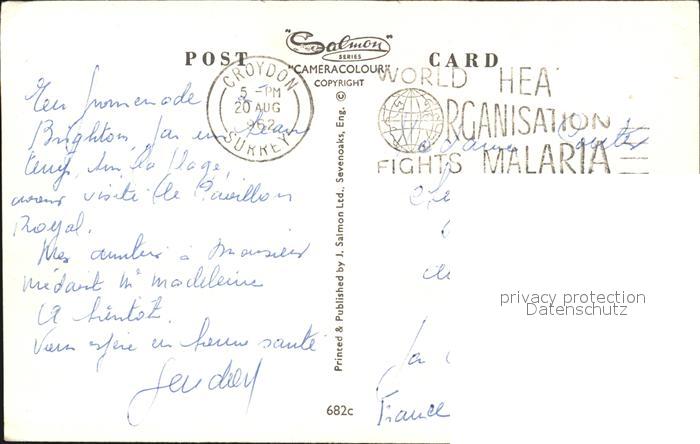 POST CARD
"Salmon"
SERIES
"CAMERACOLOUR"
COPYRIGHT ©
CROYDON
5 - PM
20 AUG
SURREY
WORLD HEA
ORGANISATION
FIGHTS MALARIA
En promenade à
Brighton, par un beau
temps, sur la plage,
avons visité le Pavillon
Royal.
Mes amitiés à Monsieur
Médard Me Madeleine
A bientôt.
Vous espère en bonne santé
Printed & Published by J. Salmon Ltd., Sevenoaks, Eng.
682c
France
privacy protection
Datenschutz